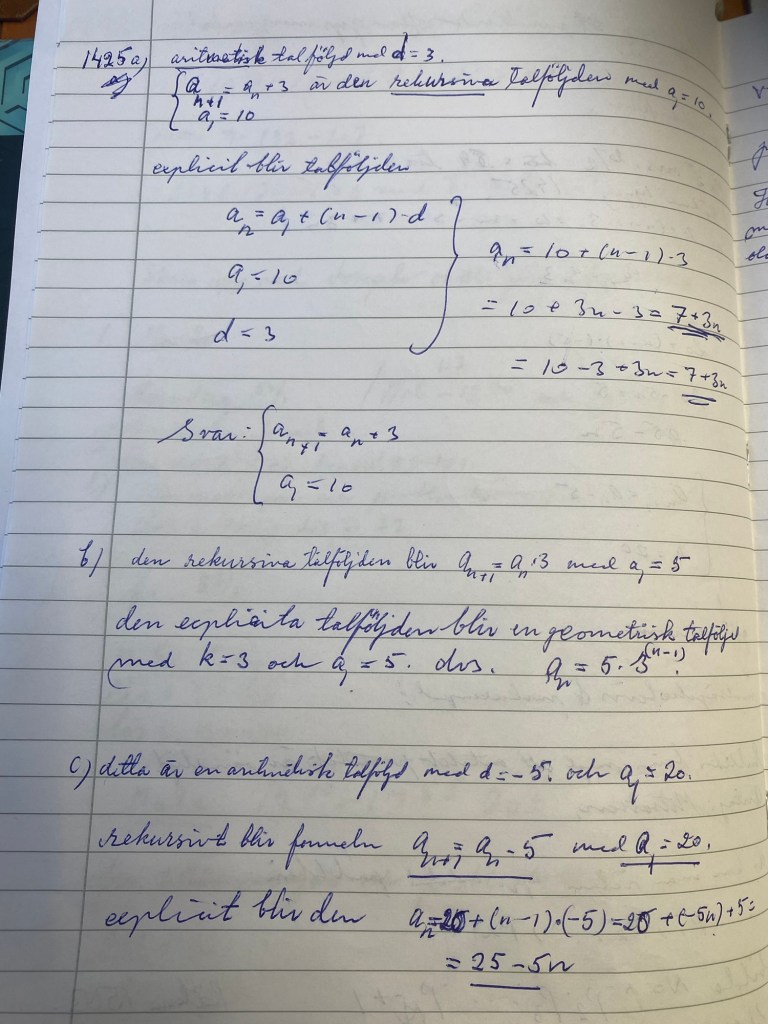 1425 a) aritmetisk talföljd med d = 3.
{ a_{n+1} = a_n + 3 är den rekursiva talföljden med a_1 = 10.
a_1 = 10
explicit blir talföljden
a_n = a_1 + (n-1)·d
a_n = 10 + (n-1)·3
a_1 = 10
= 10 + 3n - 3 = 7+3n
d = 3
= 10 - 3 + 3n = 7+3n
Svar: { a_{n+1} = a_n + 3
a_1 = 10
b) den rekursiva talföljden blir a_{n+1} = a_n·3 med a_1 = 5
den explicita talföljden blir en geometrisk talföljd
med k=3 och a_1 = 5. dvs. a_n = 5· (n-1).
c) detta är en aritmetisk talföljd med d = -5. och a_1 = 20.
rekursivt blir formeln a_{n+1} = a_n - 5 med a_1 = 20.
explicit blir den a_n = + (n-1)·(-5) = + (-5n) + 5 =
= 25 - 5n